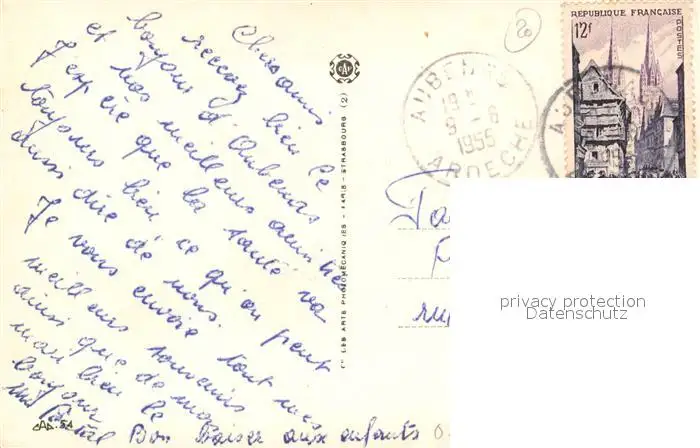 Chers amis
recevez bien le
bonjour d'Aubenas
et nos meilleurs amitiés
J'espère que la santé va
toujours bien ce qu'on peut
aussi dire de nous.
Je vous envoie tout mes
meilleurs souvenirs
ainsi que de
mari bien le
bonjour
Bon baiser aux enfants
CAP
Cie LES ARTS PHOTOMÉCANIQUES - PARIS - STRASBOURG (2)
20
AUBENAS
9 - 6
1955
ARDECHE
REPUBLIQUE FRANÇAISE
12f
POSTES
privacy protection
Datenschutz